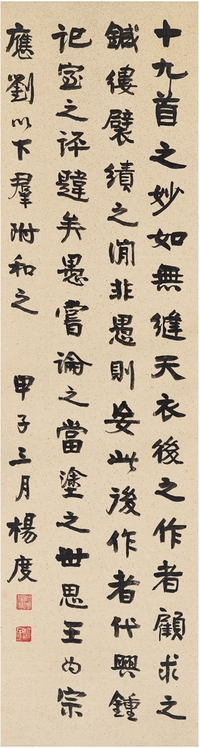 十九首之妙如無縫天衣後之作者顧求之
鍼縷襞績之間非愚則妄此後作者代興鍾
記室之評韙矣愚嘗論之當塗之世思王為宗
應劉以下羣附和之 甲子三月 楊度